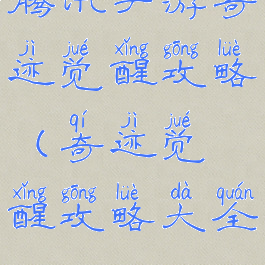 腾讯手游奇
jì jué xǐng gōng lüè
迹觉醒攻略
qí jì jué
（奇迹觉
xǐng gōng lüè dà quán
醒攻略大全